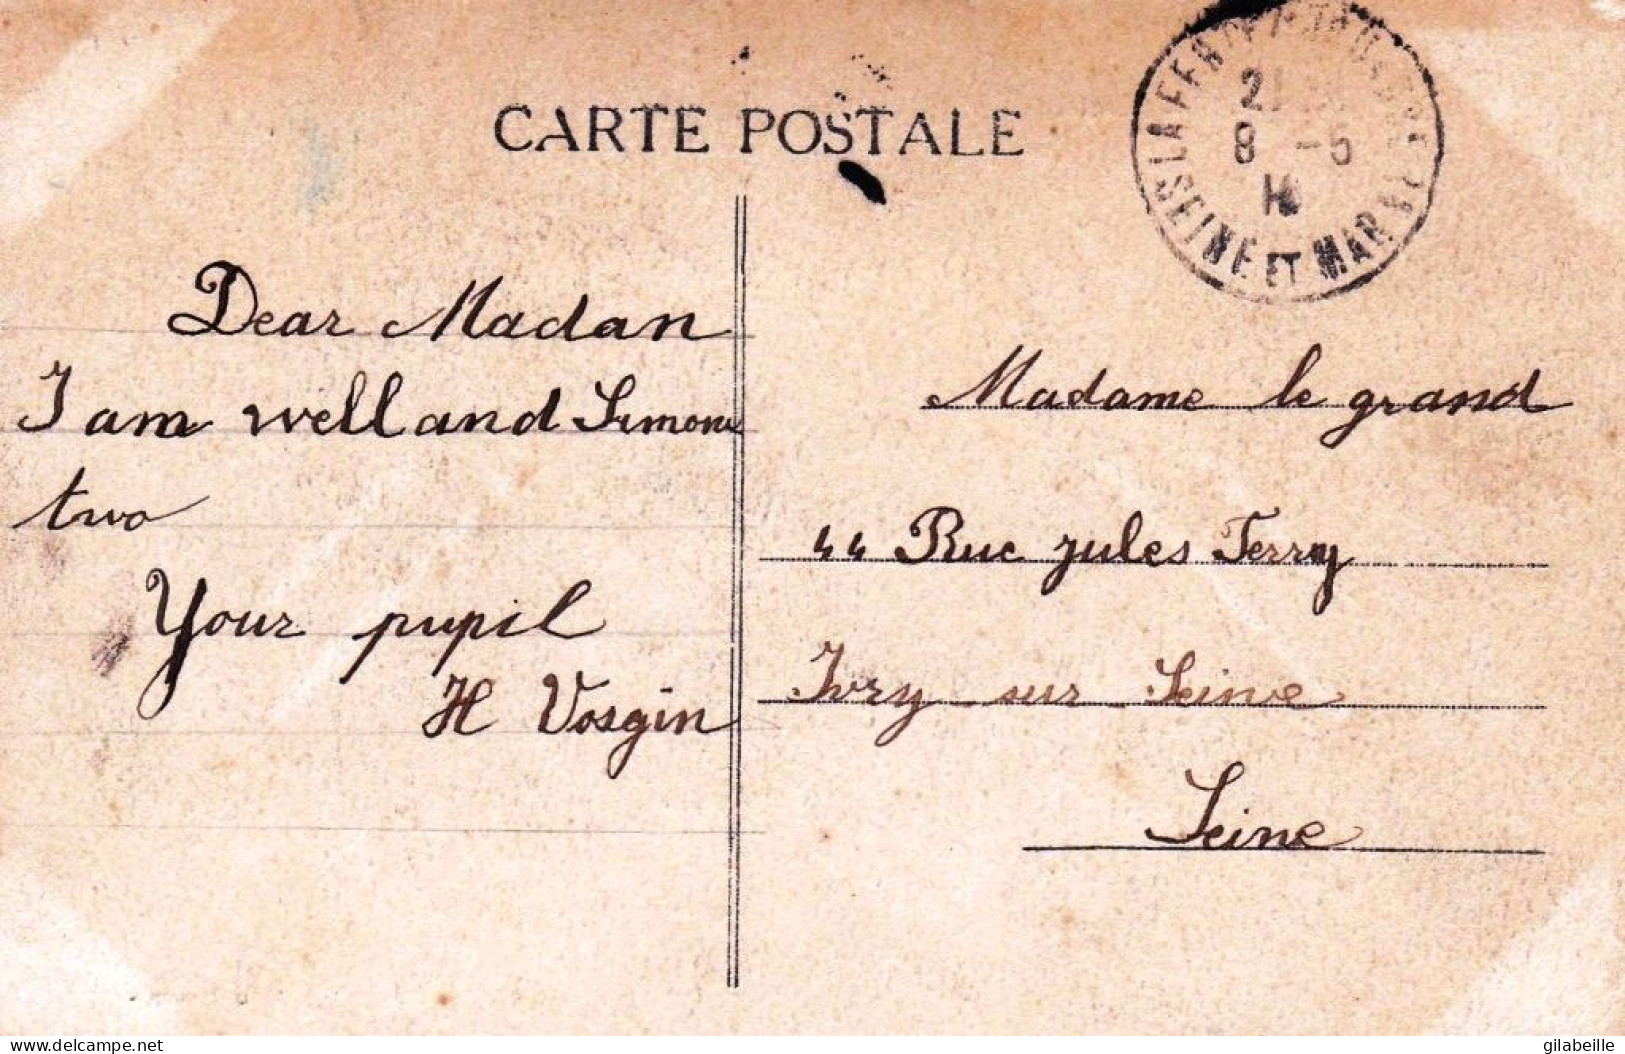 CARTE POSTALE
LA FERTE
SEINE ET MARNE
8 -5
Dear Madan
I am well and Simone
two
Your pupil
H Vosgin
Madame le grand
44 Rue jules Ferry
Ivry sur Seine
Seine
www.delcampe.net
gilabeille